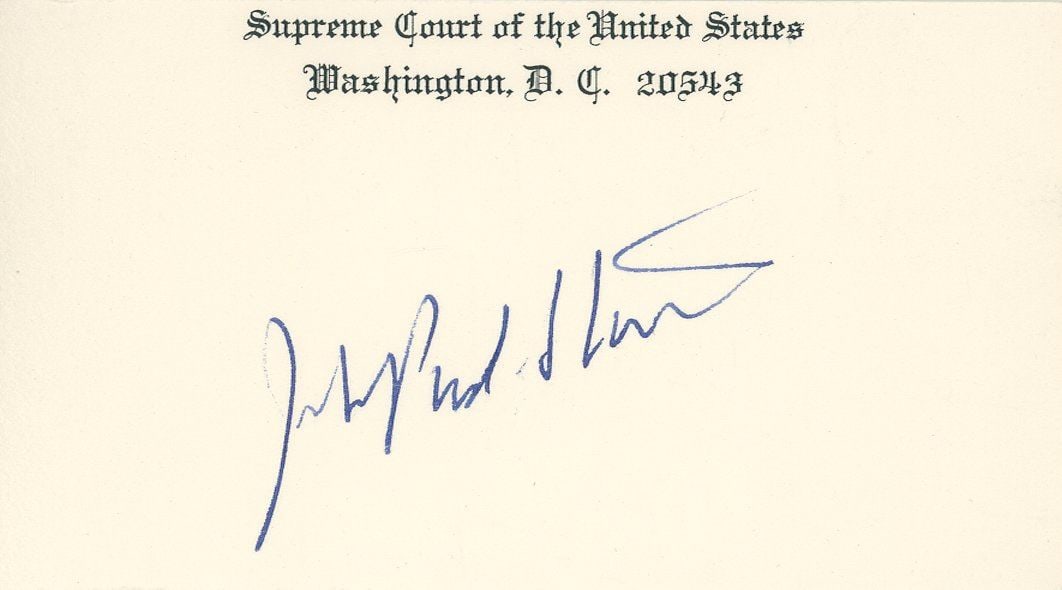 Supreme Court of the United States
Washington, D. C. 20543
John Paul Stevens